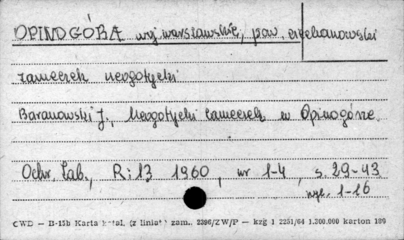 OPINOGÓRA woj. warszawskie, pow. ciechanowski
zameczek neogotycki
Baranowski J., Neogotycki zameczek w Opinogórze.
Ochr. Zab., R: 13 1960, nr 1-4, s. 29-43
wyk. 1-16
CWD — B-15b Karta katal. (z linią) zam. 2396/ZW/P — kzg 1 2251/64 1.200.000 karton 180